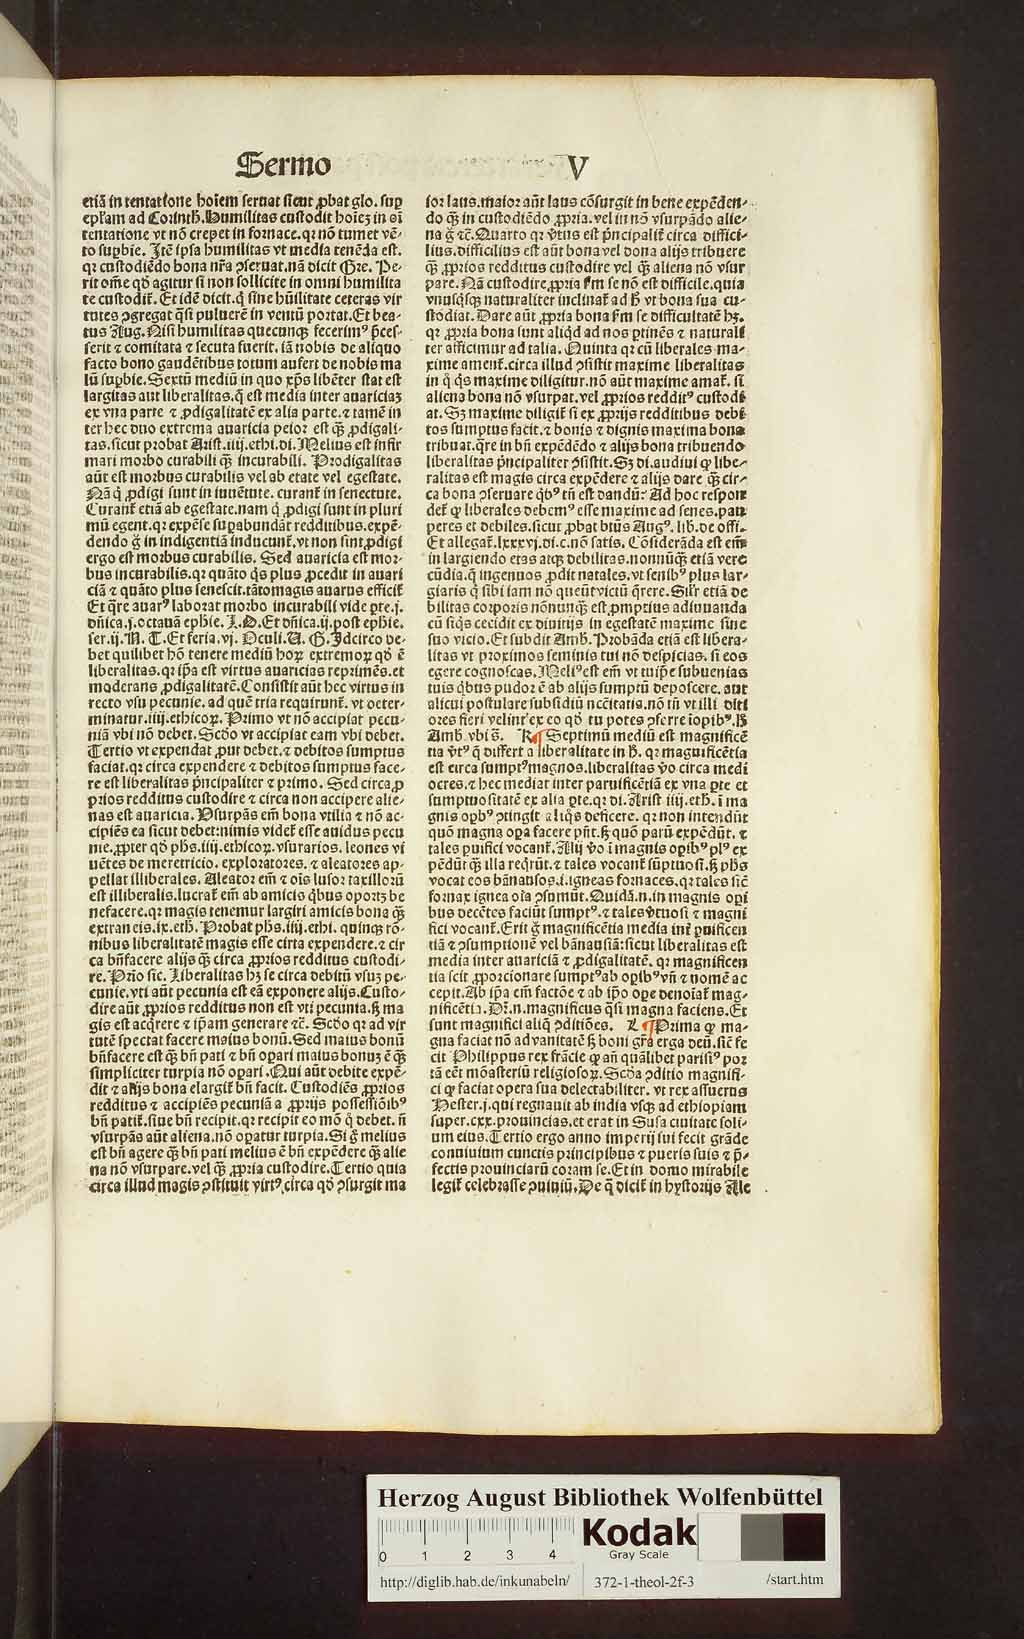 Sermo V
etiã in tentatione hoīem seruat sicut ꝓbat glo. suꝑ
epl̃am ad Corinth. Humilitas custodit hoīeʒ in oī
tentatione vt nõ crepet in fornace. qꝛ nõ tumet vẽ-
to suꝑbie. Itẽ ipsa humilitas vt media tenẽda est.
qꝛ custodiẽdo bona nr̃a ꝯseruat. nã dicit Gre. Pe-
rit om̃e qđ agitur si non sollicite in omni humilita
te custodit̃. Et idẽ dicit. ꝙ sine hũilitate ceteras vir
tutes ꝯgregat q̃si puluerẽ in ventũ portat. Et bea-
tus Aug. Nisi humilitas quecunqꝫ fecerimꝰ p̃ces-
serit ⁊ comitata ⁊ secuta fuerit. iã nobis de aliquo
facto bono gaudẽtibus totum aufert de nobis ma
lũ suꝑbie. Sextũ mediũ in quo xp̃s libẽter stat est
largitas aut liberalitas. q̃ est media inter auariciaʒ
ex vna parte ⁊ ꝓdigalitatẽ ex alia parte. ⁊ tamẽ in
ter hec duo extrema auaricia peior est q̃ꝫ ꝓdigali-
tas. sicut probat Arist. iiij. ethi. di. Melius est infir
mari morbo curabili q̃ꝫ incurabili. Prodigalitas
aũt est morbus curabilis vel ab etate vel egestate.
Nã q̃ ꝓdigi sunt in iuuẽtute. curant̃ in senectute.
Curant̃ etiã ab egestate. nam q̃ ꝓdigi sunt in pluri
mũ egent. qꝛ expẽse suꝑabundãt redditibus. expẽ-
dendo g̃ in indigentiã inducunt̃. vt non sint ꝓdigi
ergo est morbus curabilis. Sed auaricia est mor-
bus incurabilis. qꝛ quãto q̃s plus ꝓcedit in auari
ciã ⁊ quãto plus senescit. tãtomagis auarus efficit̃
Et q̃re auarꝰ laborat morbo incurabili vide ꝑte. j.
dñica. j. octauã epħie. I. O. Et dñica. ij. post epħie.
ser. ij. N. T. Et feria. vj. Oculi. A. G. Idcirco de-
bet quilibet hõ tenere mediũ hoꝝ extremoꝝ qđ ẽ
liberalitas. qꝛ ip̃a est virtus auaricias reprimẽs. et
moderans ꝓdigalitatẽ. Consistit aũt hec virtus in
recto vsu pecunie. ad quẽ tria requirunt̃. vt deter-
minatur. iiij. ethicoꝝ. Primo vt nõ accipiat pecu-
niã vbi nõ debet. Scđo vt accipiat eam vbi debet.
Tertio vt expendat ꝓut debet. ⁊ debitos sumptus
faciat. qꝛ circa expendere ⁊ debitos sumptus face-
re est liberalitas p̃ncipaliter ⁊ primo. Sed circa ꝓ
prios redditus custodire ⁊ circa non accipere alie-
nas est auaricia. Vsurpãs em̃ bona vtilia ⁊ nõ ac-
cipiẽs ea sicut debet: nimis videt̃ esse auidus pecu
nie. ꝓpter qđ pħs. iiij. ethicoꝝ. vsurarios. leones vi
uẽtes de meretricio. exploratores. ⁊ aleatores ap-
pellat illiberales. Aleator em̃ ⁊ oīs lusor taxilloꝝ
est illiberalis. lucrat̃ em̃ ab amicis q̃bus oportʒ be
nefacere. qꝛ magis tenemur largiri amicis bona q̃ꝫ
extraneis. ix. eth. Probat pħs. iiij. ethi. quinqꝫ rõ-
nibus liberalitatẽ magis esse circa expendere. ⁊ cir
ca bñfacere alijs q̃ꝫ circa ꝓprios redditus custodi-
re. Prĩo sic. Liberalitas hʒ se circa debitũ vsuʒ pe-
cunie. vti aũt pecunia est eã exponere alijs. Custo-
dire aũt ꝓprios redditus non est vti pecunia. ſʒ ma
gis est acq̃rere ⁊ ip̃am generare ⁊c̃. Scđo qꝛ ad vir
tutẽ spectat facere maius bonũ. Sed maius bonũ
bñfacere est q̃ꝫ bñ pati ⁊ bñ oꝑari maius bonuʒ ẽ q̃ꝫ
simpliciter turpia nõ oꝑari. Qui aũt debite expẽ-
dit ⁊ alijs bona elargit̃ bñ facit. Custodiẽs ꝓprios
redditus ⁊ accipiẽs pecuniã a ꝓprijs possessiõibꝰ
bñ patit̃. siue bñ recipit. qꝛ recipit eo mõ q̃ debet. ñ
vsurpãs aũt aliena. nõ oꝑatur turpia. Si g̃ melius
est bñ agere q̃ꝫ bñ pati melius ẽ bñ expẽdere q̃ꝫ alie
na nõ vsurpare. vel q̃ꝫ ꝓpria custodire. Tertio quia
circa illud magis ꝯstituit virtꝰ. circa qđ ꝯsurgit ma
ior laus. maior aũt laus cõsurgit in bene expẽden-
do q̃ꝫ in custodiẽdo ꝓpria. vel in nõ vsurpãdo alie-
na g̃ ⁊c̃. Quarto qꝛ v̓tus est p̃ncipalit̃ circa diffici-
lius. difficilius est aũt bona vel dona alijs tribuere
q̃ꝫ ꝓprios redditus custodire vel q̃ꝫ aliena nõ vsur
pare. Nã custodire ꝓpria ẜm se nõ est difficile. quia
vnusq̃sqꝫ naturaliter inclinat̃ ad ħ vt bona sua cu-
stodiat. Dare aũt ꝓpria bona ẜm se difficultatẽ hʒ.
qꝛ ꝓpria bona sunt aliq̃d ad nos ꝑtinẽs ⁊ naturali
ter afficimur ad talia. Quinta qꝛ cũ liberales ma-
xime ament̃. circa illud ꝯsistit maxime liberalitas
in q̃ q̃s maxime diligitur. nõ aũt maxime amat̃. si
aliena bona nõ vsurpat. vel ꝓprios redditꝰ custodi
at. Sʒ maxime diligit̃ si ex ꝓprijs redditibus debi
tos sumptus facit. ⁊ bonis ⁊ dignis maxima bona
tribuat. q̃re in bñ expẽdẽdo ⁊ alijs bona tribuendo
liberalitas p̃ncipaliter ꝯsistit. Sʒ di. audiui ꝙ libe-
ralitas est magis circa expẽdere ⁊ alijs dare q̃ꝫ cir-
ca bona ꝯseruare q̃bꝰ tñ est dandũ? Ad hoc respon
det̃ ꝙ liberales debemꝰ esse maxime ad senes. pau
peres et debiles. sicut ꝓbat btũs Augꝰ. lib. de offi.
Et allegat̃. lxxxvj. di. c. nõ satis. Cõsiderãda est em̃
in largiendo etas atqꝫ debilitas. nonnũq̃ꝫ etiã vere
cũdia. q̃ ingenuos ꝓdit natales. vt senibꝰ plus lar-
giaris q̃ sibi iam nõ queũt victũ q̃rere. Sil̃r etiã de
bilitas corporis nõnunq̃ꝫ est. ꝓmptius adiuuanda
cũ siq̃s cecidit ex diuitijs in egestatẽ maxime sine
suo vicio. Et subdit Amb. Probãda etiã est libera-
litas vt proximos seminis tui nõ despicias. si eos
egere cognoscas. Meliꝰ est em̃ vt tuip̃e subuenias
tuis q̃bus pudor ẽ ab alijs sumptũ deposcere. aut
alicui postulare subsidiũ ncc̃itatis. nõ tñ vt illi diti
ores fieri velint ex eo qđ tu potes ꝯferre iopibꝰ. ħ
Amb. vbi s̃. K ¶ Septimũ mediũ est magnificẽ
tia v̓tꝰ q̃ differt a liberalitate in ħ. qꝛ magnificẽtia
est circa sumptꝰ magnos. liberalitas v̓o circa medi
ocres. ⁊ hec mediat inter paruificẽtiã ex vna ꝑte et
sumptuositatẽ ex alia ꝑte. qꝛ di. Arist iiij. eth. ĩ ma
gnis oꝑbꝰ ꝯtingit aliq̃s deficere. qꝛ non intendũt
quõ magna oꝑa facere pñt. ſʒ quõ parũ expẽdũt. ⁊
tales puifici vocant̃. Alij v̓o ĩ magnis oꝑibꝰ plꝰ ex
pẽdũt q̃ꝫ illa req̃rũt. ⁊ tales vocant̃ sũptuosi. ſʒ pħs
vocat eos bãnausos. i. igneas fornaces. qꝛ tales sic̃
fornax ignea oĩa ꝯsumũt. Quidã. n. in magnis oꝑi
bus decẽtes faciũt sumptꝰ. ⁊ tales v̓tuosi ⁊ magni
fici vocant̃. Erit g̃ magnificẽtia media int̃ ꝑuificen
tiã ⁊ ꝯsumptionẽ vel bãnausiã: sicut liberalitas est
media inter auariciã ⁊ ꝓdigalitatẽ. qꝛ magnificen
tia scit ꝓporcionare sumptꝰ ab oꝑibꝰ vñ ⁊ nomẽ ac
cepit. Ab ip̃a em̃ factõe ⁊ ab ip̃o oꝑe denoĩat̃ mag-
nificẽtia. Dr̃. n. magnificus q̃si magna faciens. Et
sunt magnifici aliq̃ ꝯditiões. L ¶ Prima ꝙ ma-
gna faciat nõ ad vanitatẽ ſʒ boni gr̃a erga deũ. sic̃ fe
cit Philippus rex frãcie ꝙ añ quãlibet parisiꝰ por
tã cẽt mõasteriũ religiosoꝝ. Scđa ꝯditio magnifi-
ci ꝙ faciat opera sua delectabiliter. vt rex assuerus
Hester. j. qui regnauit ab india vsqꝫ ad ethiopiam
super. cxx. prouincias. et erat in Susa ciuitate soli-
um eius. Tertio ergo anno imperij sui fecit grãde
conuiuium cunctis principibus ⁊ pueris suis ⁊ p̃-
fectis prouinciarũ coram se. Et in domo mirabile
legit̃ celebrasse ꝯuiuiũ. De q̃ dicit̃ in hystorijs Ale
Herzog August Bibliothek Wolfenbüttel
0 1 2 3 4
Kodak
Gray Scale
http://diglib.hab.de/inkunabeln/ 372-1-theol-2f-3 /start.htm